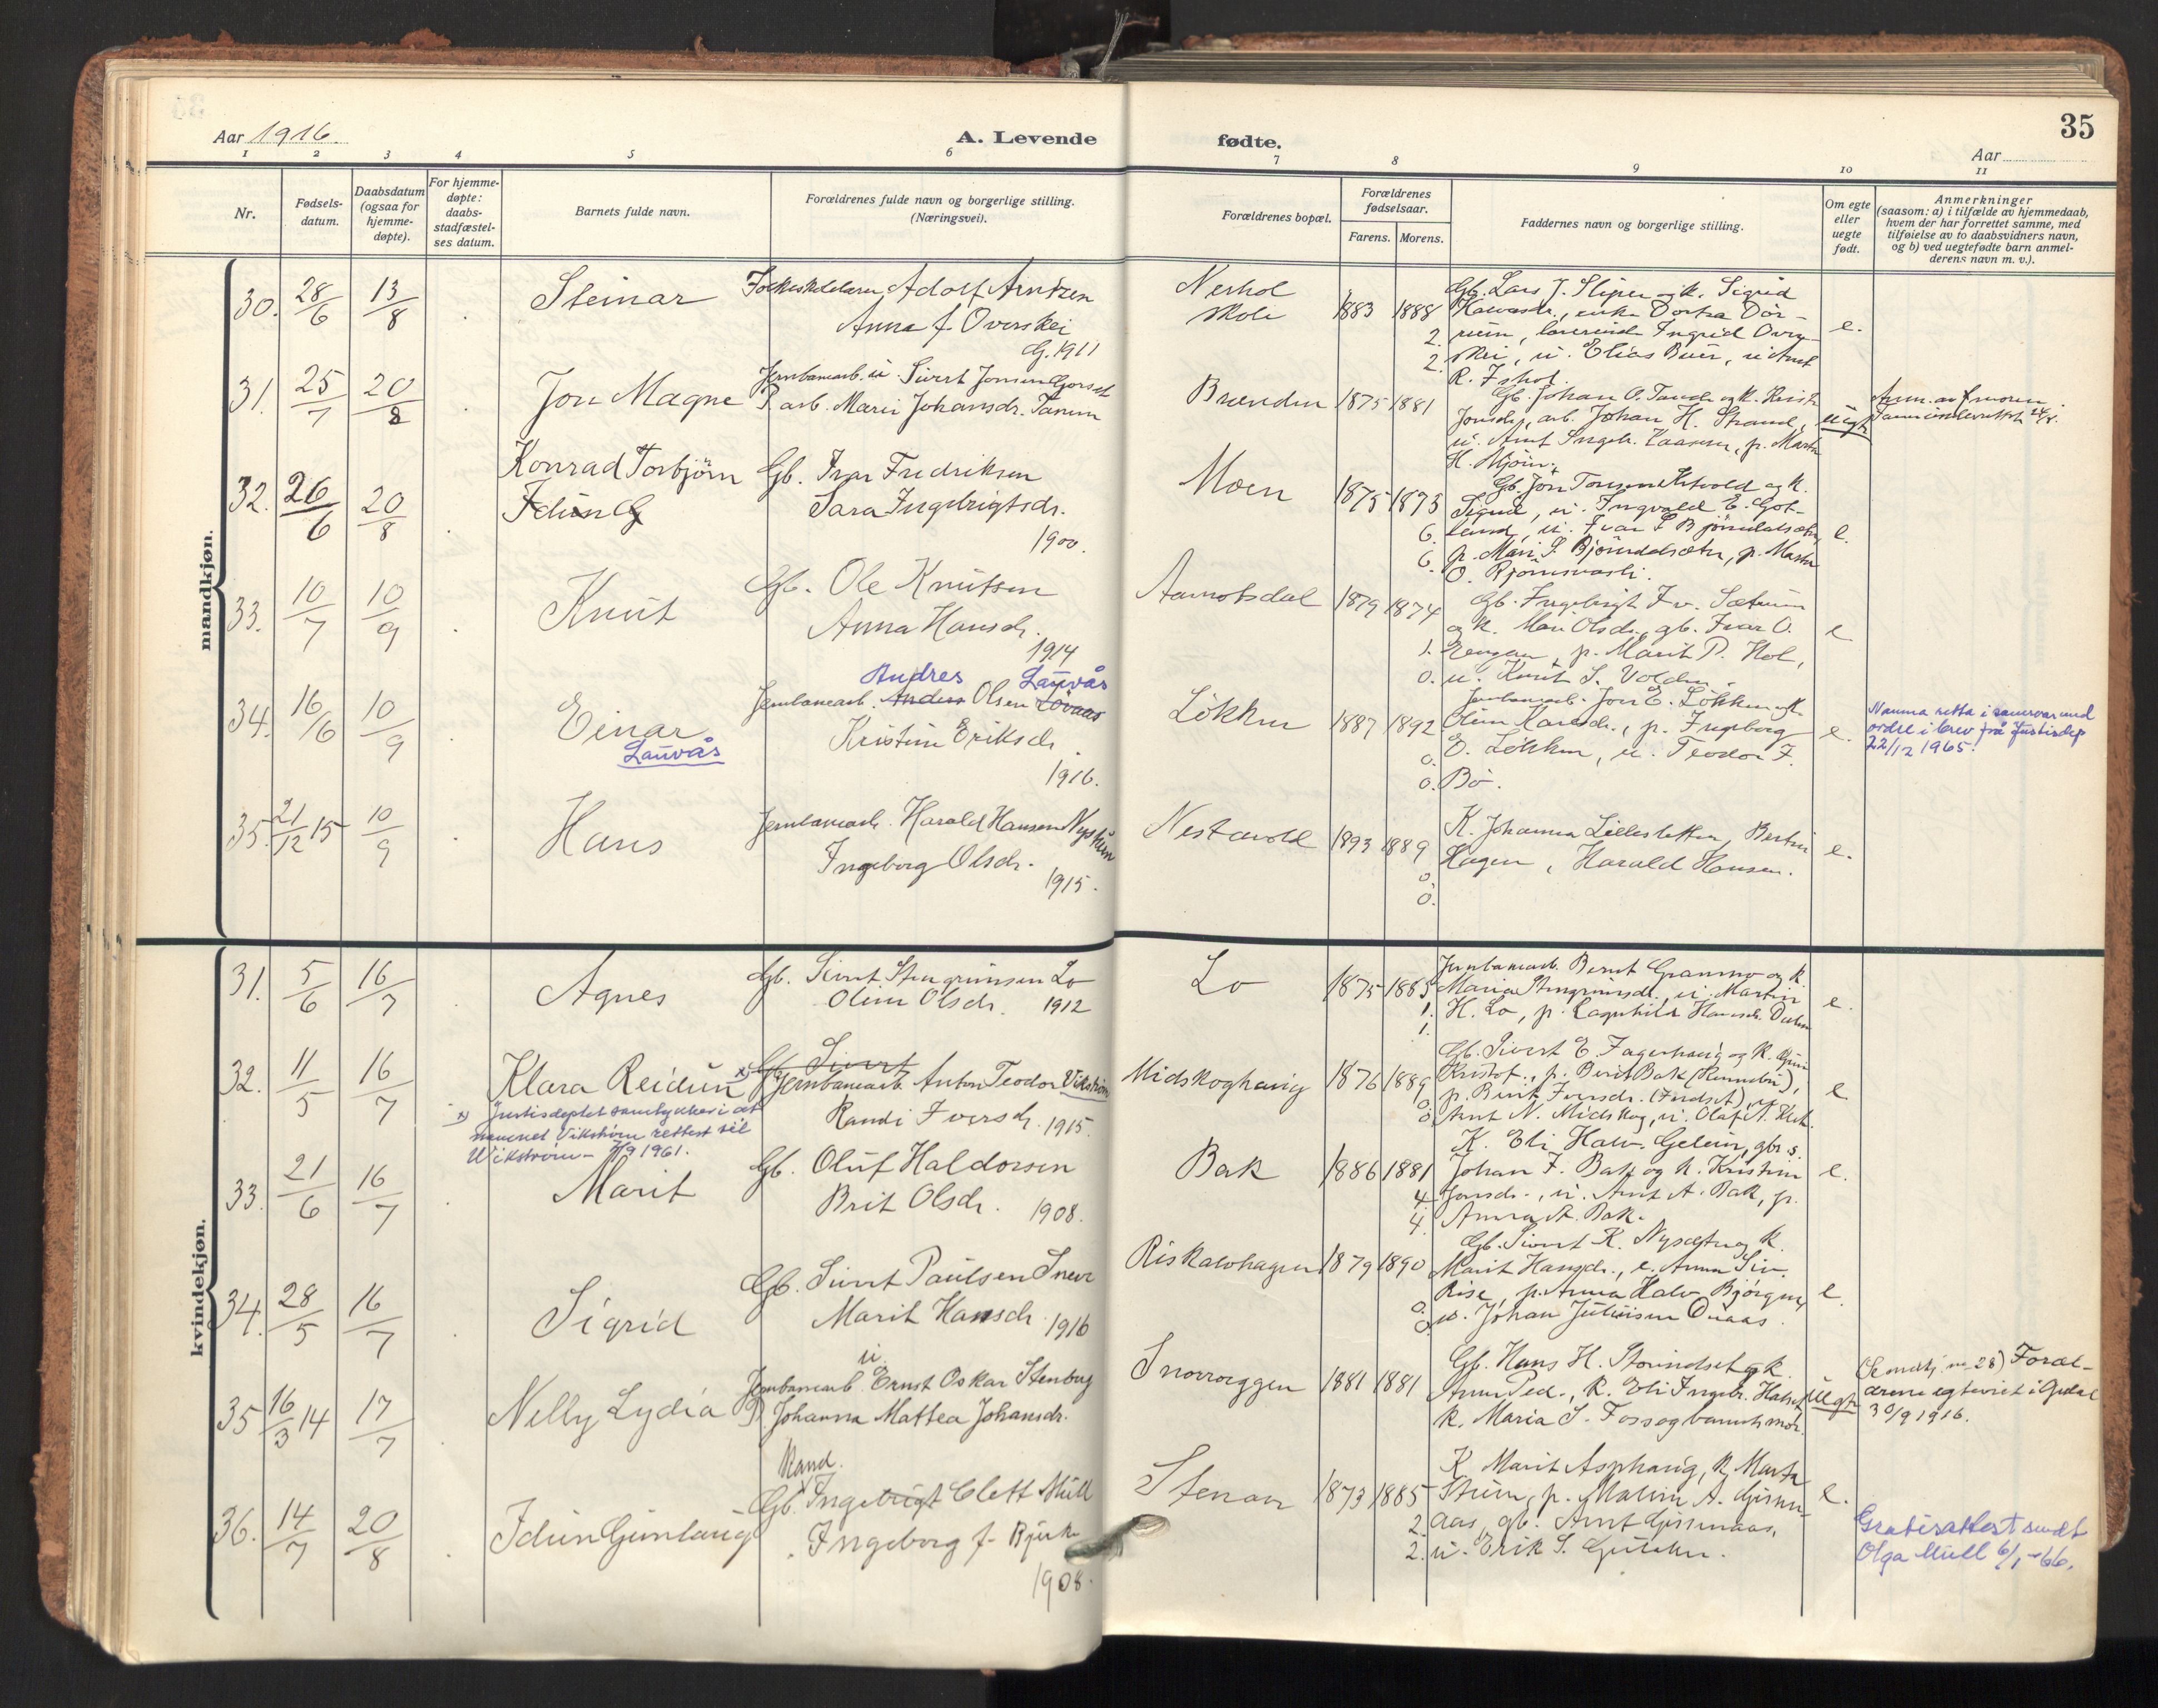 35
Aar 1916.
A. Levende fødte.
Aar
1 2 3 4 5 6 7 8 9 10 11
Nr.
Fødsels-
datum.
Daabsdatum
(ogsaa for
hjemme-
døpte).
For hjemme-
døpte:
daabs-
stadfæstel-
ses datum.
Barnets fulde navn.
Forældrenes fulde navn og borgerlige stilling.
(Næringsvei).
Forældrenes bopæl.
Forældrenes
fødselsaar.
Farens. Morens.
Faddernes navn og borgerlige stilling.
Om egte
eller
uegte
født.
Anmerkninger
(saasom: a) i tilfælde av hjemmedaab,
hvem der har forrettet samme, med
tilføielse av to daabsvidners navn,
og b) ved uegtefødte barn anmel-
derens navn m. v.).
mandkjøn.
30. 28/6 13/8 Steinar
Adolf Arntzen
Anna f. Overskei
G. 1911
Nerhol
skole
1883 1888
2.
2.
Gb. Lars J. Sliper og k. Sigrid
Dortea Dør-
Ingrid Over-
skei, u. Elias Buer, u. Arnt
e.
31. 25/7 20/8 Jon Magne
Jernbanearb. u. Sivert Jonsen Gorset
P. arb. Marie Johansdr. Tanem
Brænden 1875 1881
Gb. Johan O.
Jonsdr., arb. Johan H. Strand,
u. Arnt Ingebr. Kaasen, p. Marta
uegte
Anm. av moren
32. 26/6 20/8 Konrad Torbjørn
Idun G
Gb. Ivar Fredriksen
Sara Ingebrigtsdr.
1900.
Moen 1875 1873
6.
6.
Gb. Jon og k.
Sigrid, u. Ingvald E. Got-
land, u. Ivar S. Bjørndalsæter,
p. Mari S. Bjørndalsæter, p. Marta
O.
e.
33. 10/7 10/9 Knut
Gb. Ole Knutsen
Anna Hansdr.
1914
Aamotsdal 1879 1874
1.
0.
Gb. Ingebrigt Iv. Sætrum
og k. Mari Olsdr., gb. Ivar O.
p. Marit P. Hol,
u. Knut S. Volden.
e
34. 16/6 10/9 Einar
Lauvås
Andres Lauvås
Jernbanearb. Anders Olsen Løvaas
Kristine Eriksdr.
1916.
Løkken 1887 1892
0.
0.
Jernbanearb. Jon E. Løkken og k.
Oline Karlsdr., p. Ingeborg
E. Løkken, u. Teodor F.
Bø.
e.
Namna retta i samsvar med
ordre i brev frå Justisdep
22/12 1965.
35. 21/12 15 10/9 Hans
Jernbanearb. Harald Hansen Nystuen
Ingeborg Olsdr.
1915.
Nestavold 1893 1889
0.
0.
K. Johanna Lillesletten, Bertin
Hagen, Harald Hansen.
e.
kvindekjøn.
31. 5/6 16/7 Agnes
Gb. Sivert Stengrimsen Lo
Oline Olsdr. 1912
Lo 1875 1885
1.
1.
Jernbanearb. Bernt Granmo og k.
Maria Stengrimsdr., u. Martin
H. Lo, p. Ragnhild Hansdr.
e.
32. 11/5 16/7 Klara Reidun x)
Gb. Sivert
Jernbanearb. Anton Teodor Vikstrøm
Randi Iversdr. 1915.
x) Justisdeptet samtykker i at
navnet Vikstrøm rettest til
Wikstrøm – 7/9 1961.
Midskoghaug 1876 1889
0.
0.
Gb. Sivert E. Fagerhaug og k. Guri
Kristof., p. Berit Bak (Rennebu),
p. Berit Iversdr. u.
Arnt N. Midskog, u. Olaf
e.
33. 21/6 16/7 Marit
Gb. Oluf Haldorsen
Brit Olsdr. 1908.
Bak 1886 1881
4.
4.
K. Eli Halv. Gelein, gbr.s.
Johan J. Bak og k. Kristine
Jonsdr., u. Arnt A. Bak, p.
Anna A. Bak.
e.
34. 28/5 16/7 Sigrid
Gb. Sivert Paulsen Sneve
Marit Hansdr. 1916
Riskalvhagen 1879 1890
0.
0.
Gb. Sivert R. Nysæter og k.
Marit Hansdr., e. Anna Siv.
Rise, p. Anna Halv. Bjørgen,
u. Johan Juliusen Duaas.
e.
35. 16/3 14 17/7 Nelly Lydia
u.
Jernbanearb. Ernst Oskar Stenberg
P. Johanna Mattea Johansdr.
Snorroeggen 1881 1881
Gb. Hans H. Storindset og k.
Anne Ped., k. Eli Ingebr. Halset
k. Maria S. Foss og barnets mor.
Uegte
(Se mdkj. nr 28) Foræl-
drene egteviet i Opdal
30/9 1916.
36. 14/7 20/8 Idun Gunlaug
Rand.
Gb. Ingebrigt Clett Mull
Ingeborg f. Bjerke
1908.
Stenan 1873 1885
2.
2.
K. Marit Asphaug, k. Marta
Stuen, p. Malvin A. Gisin-
aas, gb. Arnt Gisinaas,
u. Erik S.
e.
Gratisattest sendt
Olga Mull 6/1 -66.